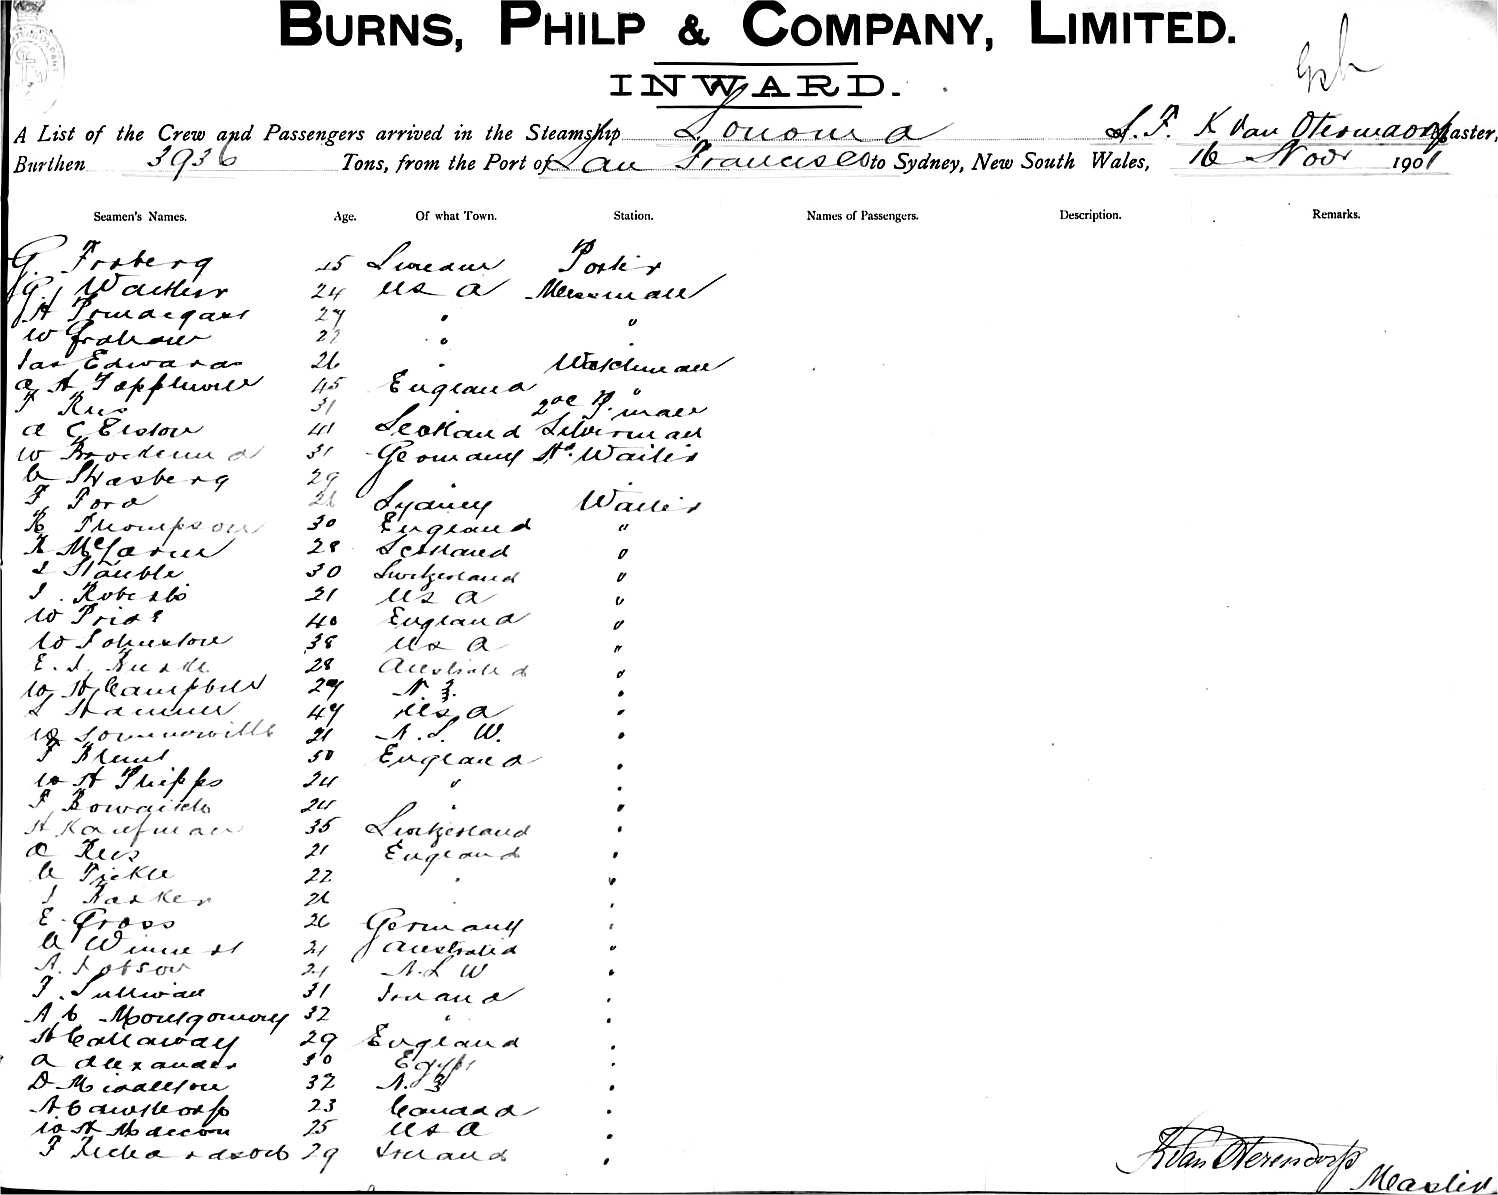 BURNS, PHILP & COMPANY, LIMITED.
INWARD.
A List of the Crew and Passengers arrived in the Steamship Sonoma S. F. K Van Oterendorp Master,
Burthen 3936 Tons, from the Port of San Francisco to Sydney, New South Wales, 16 Novr 1901
Seamen's Names. Age. Of what Town. Station. Names of Passengers. Description. Remarks.
G. Frsberg 45 Sweden Porter
G. Walker 24 US A Messman
H 27 " "
W Graham 22 " "
Jas Edwards 26 " Watchman
a H 45 England "
F Rees 31 2nd P. man
a C Elston 41 Scotland Silverman
W 31 Germany Hd. Waiter
C Strasberg 29
F Ford Sydney Waiter
R Thompson 30 England "
R 28 Scotland "
S Stauble 30 Switzerland "
J. Roberts 21 US A "
W Pride 40 England "
W Johnston 38 US A "
E. J. 28 Australia "
W H Campbell 29 N. Z. "
S 47 US A "
W Sommerville 21 N. S. W. "
F Blunt 50 England "
W H Phipps 24 " "
F 24 " "
H Kaufman 35 Switzerland "
a Rees 21 England "
C Tickle 22 " "
J Barker 21 " "
E. Gross 26 Germany "
C 21 Australia "
A. Jobson 21 N. S W "
F. Sullivan 31 Ireland "
A C Montgomery 32 " "
H Callaway 29 England "
a Alexander 30 Egypt "
D Middleton 32 N. Z "
A Cawthorp 23 Canada "
W H 25 US A "
F Richardson 29 Ireland "
K Van Oterendorp
Master